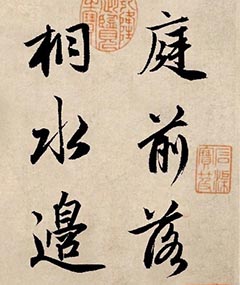 庭前落
相水邊